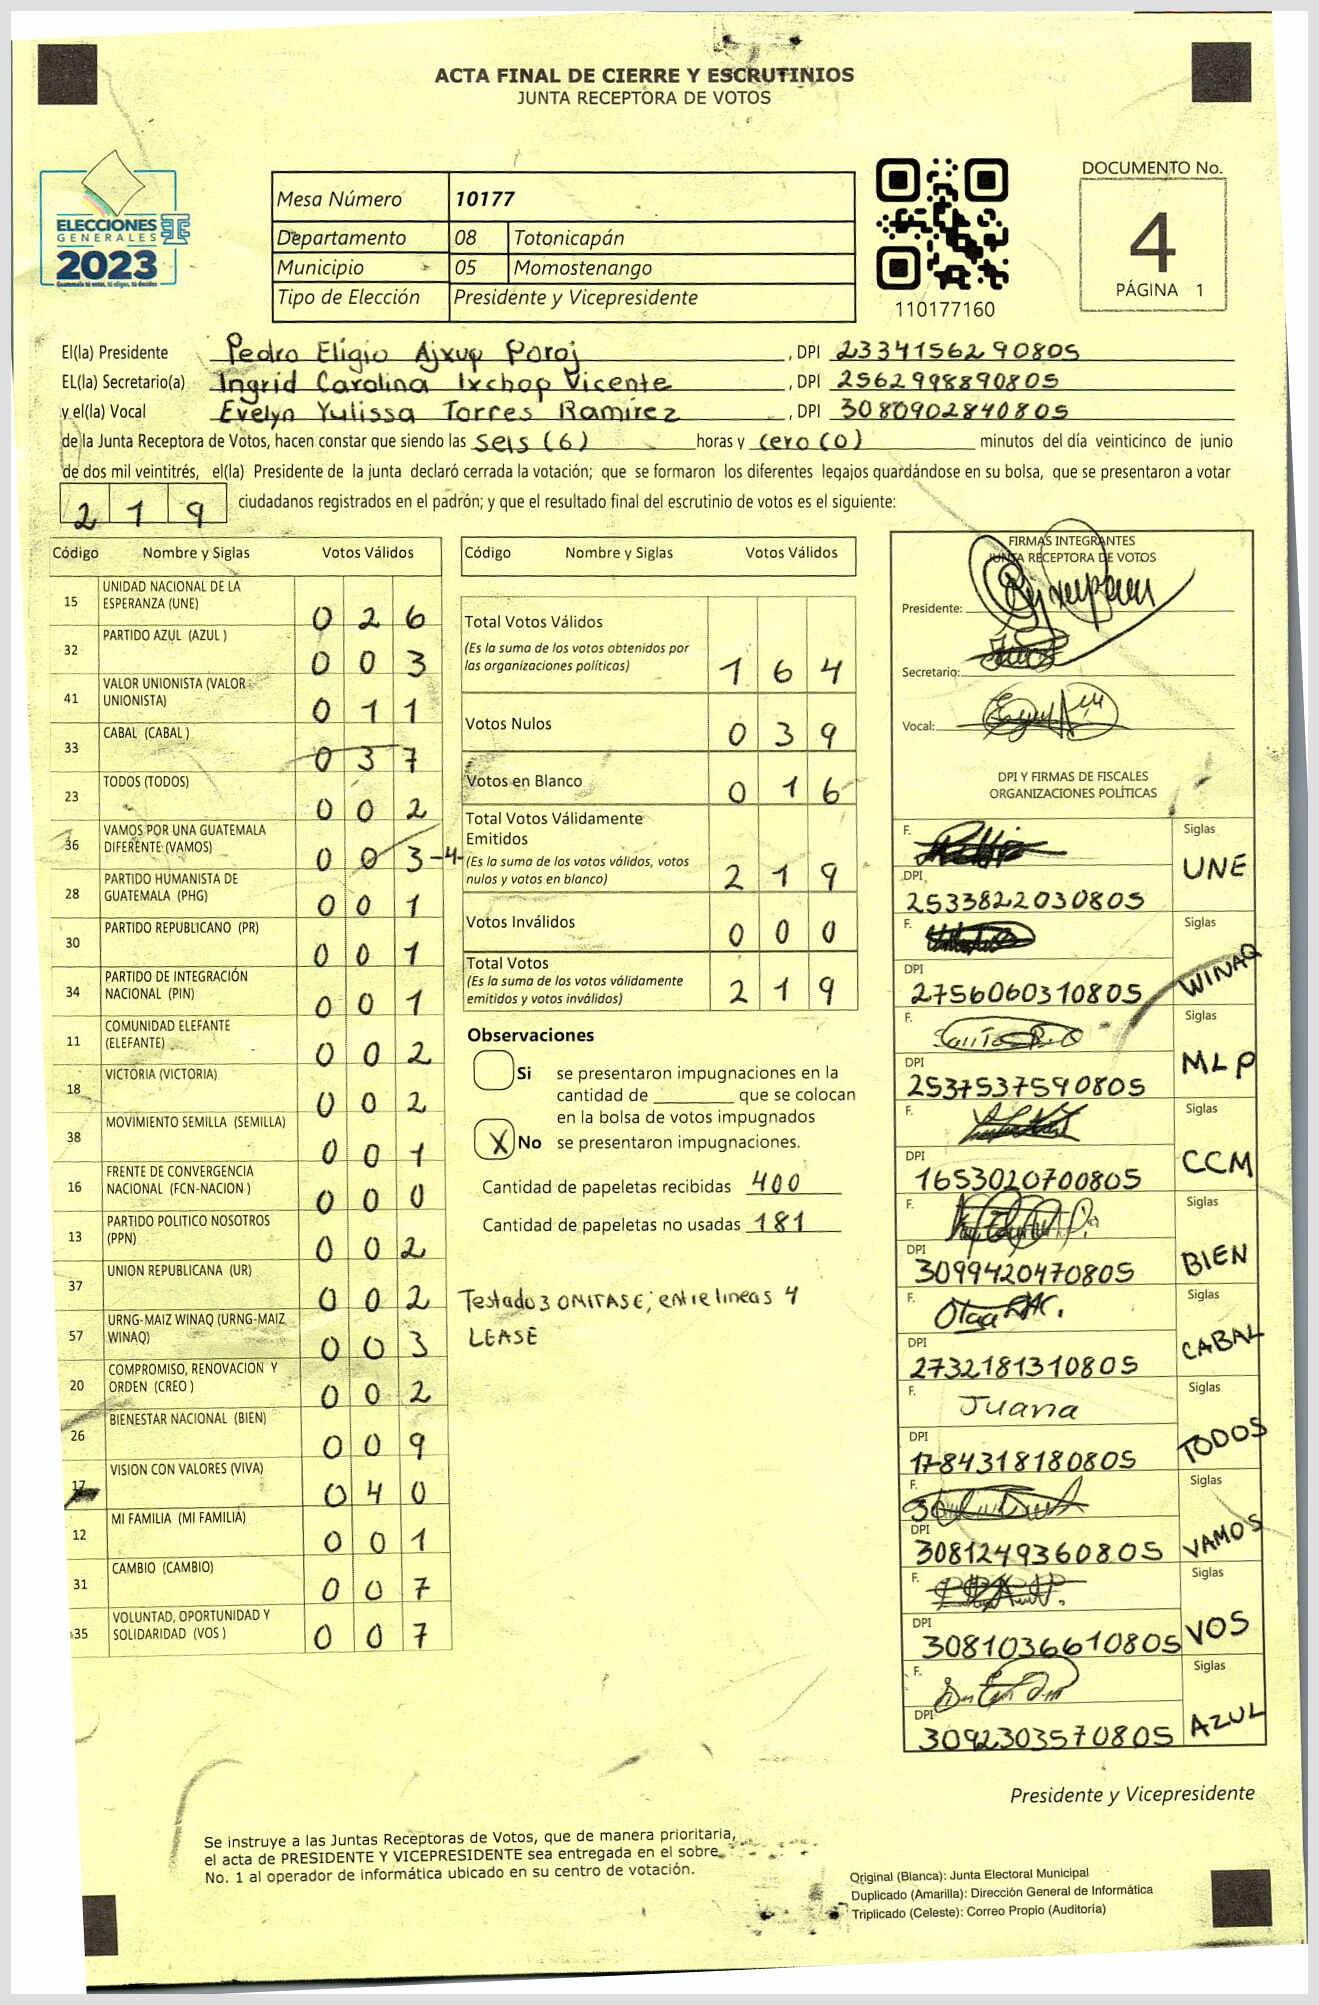 ACTA FINAL DE CIERRE Y ESCRUTINIOS
JUNTA RECEPTORA DE VOTOS
ELECCIONES
GENERALES
2023
Mesa Número 10177
Departamento 08 Totonicapán
Municipio 05 Momostenango
Tipo de Elección Presidente y Vicepresidente
110177160
DOCUMENTO No.
4
PÁGINA 1
El(la) Presidente Pedro Eligio Ajxup Poroj, DPI 2334156290805
EL(la) Secretario(a) Ingrid Carolina Ixchop Vicente, DPI 2562998890805
y el(la) Vocal Evelyn Yulissa Torres Ramirez, DPI 3080902840805
de la Junta Receptora de Votos, hacen constar que siendo las Seis (6) horas y cero (0) minutos del día veinticinco de junio
de dos mil veintitrés, el(la) Presidente de la junta declaró cerrada la votación; que se formaron los diferentes legajos guardándose en su bolsa, que se presentaron a votar
2 1 9 ciudadanos registrados en el padrón; y que el resultado final del escrutinio de votos es el siguiente:
Código Nombre y Siglas Votos Válidos
15 UNIDAD NACIONAL DE LA ESPERANZA (UNE) 0 2 6
32 PARTIDO AZUL (AZUL ) 0 0 3
41 VALOR UNIONISTA (VALOR UNIONISTA) 0 1 1
33 CABAL (CABAL ) 0 3 7
23 TODOS (TODOS) 0 0 2
36 VAMOS POR UNA GUATEMALA DIFERENTE (VAMOS) 0 0 3 -4-
28 PARTIDO HUMANISTA DE GUATEMALA (PHG) 0 0 1
30 PARTIDO REPUBLICANO (PR) 0 0 1
34 PARTIDO DE INTEGRACIÓN NACIONAL (PIN) 0 0 1
11 COMUNIDAD ELEFANTE (ELEFANTE) 0 0 2
18 VICTORIA (VICTORIA) 0 0 2
38 MOVIMIENTO SEMILLA (SEMILLA) 0 0 1
16 FRENTE DE CONVERGENCIA NACIONAL (FCN-NACION ) 0 0 0
13 PARTIDO POLITICO NOSOTROS (PPN) 0 0 2
37 UNION REPUBLICANA (UR) 0 0 2
57 URNG-MAIZ WINAQ (URNG-MAIZ WINAQ) 0 0 3
20 COMPROMISO, RENOVACION Y ORDEN (CREO ) 0 0 2
26 BIENESTAR NACIONAL (BIEN) 0 0 9
17 VISION CON VALORES (VIVA) 0 4 0
12 MI FAMILIA (MI FAMILIA) 0 0 1
31 CAMBIO (CAMBIO) 0 0 7
35 VOLUNTAD, OPORTUNIDAD Y SOLIDARIDAD (VOS ) 0 0 7
Código Nombre y Siglas Votos Válidos
Total Votos Válidos
(Es la suma de los votos obtenidos por
las organizaciones políticas) 1 6 4
Votos Nulos 0 3 9
Votos en Blanco 0 1 6
Total Votos Válidamente
Emitidos
(Es la suma de los votos válidos, votos
nulos y votos en blanco) 2 1 9
Votos Inválidos 0 0 0
Total Votos
(Es la suma de los votos válidamente
emitidos y votos inválidos) 2 1 9
Observaciones
Si se presentaron impugnaciones en la
cantidad de ________ que se colocan
en la bolsa de votos impugnados
X No se presentaron impugnaciones.
Cantidad de papeletas recibidas 400
Cantidad de papeletas no usadas 181
Testado 3 OMITASE; entre lineas 4
LEASE
FIRMAS INTEGRANTES
JUNTA RECEPTORA DE VOTOS
Presidente:
Secretario:
Vocal:
DPI Y FIRMAS DE FISCALES
ORGANIZACIONES POLÍTICAS
F. Siglas
DPI 2533822030805 UNE
F. Siglas
DPI 2756060310805 WINAQ
F. Siglas
DPI 2537537590805 MLP
F. Siglas
DPI 1653020700805 CCM
F. Siglas
DPI 3099420470805 BIEN
F. Olga Siglas
DPI 2732181310805 CABAL
F. Juana Siglas
DPI 1784318180805 TODOS
F. Siglas
DPI 3081249360805 VAMOS
F. Siglas
DPI 3081036610805 VOS
F. Siglas
DPI 3092303570805 AZUL
Presidente y Vicepresidente
Se instruye a las Juntas Receptoras de Votos, que de manera prioritaria,
el acta de PRESIDENTE Y VICEPRESIDENTE sea entregada en el sobre
No. 1 al operador de informática ubicado en su centro de votación.
Original (Blanca): Junta Electoral Municipal
Duplicado (Amarilla): Dirección General de Informática
Triplicado (Celeste): Correo Propio (Auditoría)